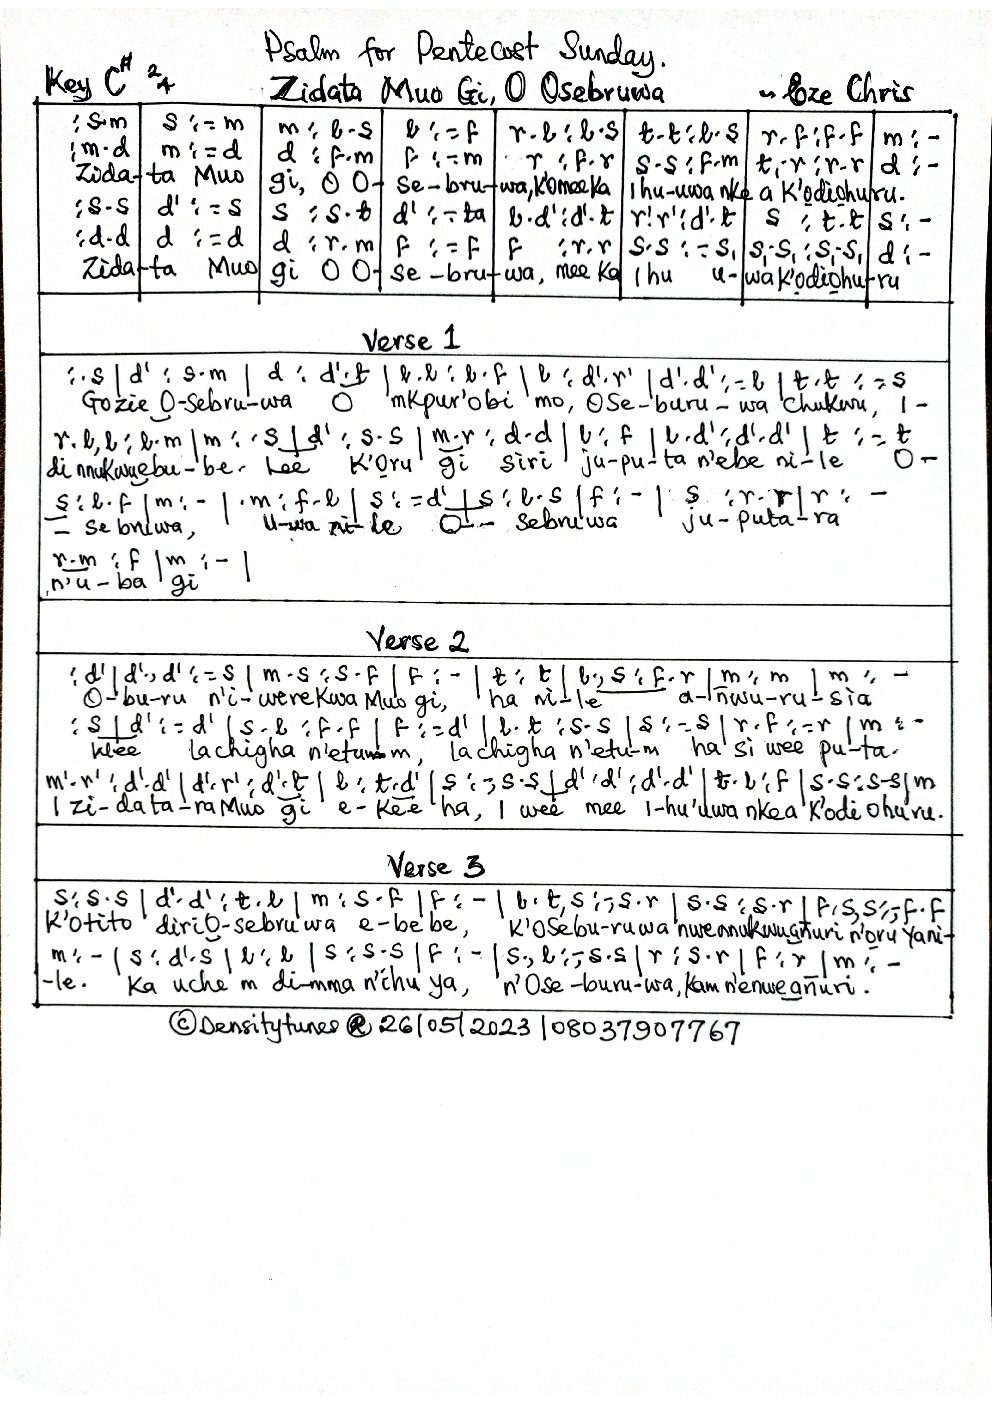 Psalm for Pentecost Sunday.
Key C# 2/4 Zidata Muo Gi, O Osebruwa ~ Eze Chris
:s.m | s :-.m | m : l.s | l :-.f | r.l : l.s | t.t : l.s | r.f : f.f | m : -
:m.d | m :-.d | d : f.m | f :-.m | r : f.r | s.s : f.m | t,.r : r.r | d : -
Zida-ta Muo gi, O O-se-bru-wa, K'omee Ka Ihu-uwa nke a K'odiọhụrụ.
:s.s | d' :-.s | s : s.t | d' :-.ta | l.d' : d'.t | r'.r' : d'.t | s : t.t | s : -
:d.d | d :-.d | d : r.m | f :-.f | f : r.r | s.s :-.s, | s,.s, : s,.s, | d : -
Zida-ta Muo gi O O-se-bru-wa, mee Ka Ihu u-wa K'odiọhu-ru
Verse 1
:.s | d' : s.m | d : d'.t | l.l : l.f | l : d'.r' | d'.d' :-.l | t.t :-.s
Gozie O-sebru-wa O mkpur'obi mo, OSe-buru-wa Chukwu, I-
r.l,l : l.m | m : .s | d' : s.s | m.r : d.d | l : f | l.d' : d'.d' | t :-.t
di nnukwuebu-be. Lee K'Oru gi siri ju-pu-ta n'ebe ni-le O-
s : l.f | m : - | .m : f.l | s :-.d' | s : l.s | f : - | s : r.r | r : -
- se bruwa, U-wa ni-le O- sebruwa ju-puta-ra
r.m : f | m : - |
n'u-ba gi
Verse 2
:d' | d'.,d' :-.s | m.s : s.f | f : - | t : t | l.,s : f.r | m : m | m : -
O-bu-ru n'i-wereKwa Muo gi, ha ni-le a-ñwu-ru-sia
:s | d' :-.d' | s.l : f.f | f :-.d' | l.t : s.s | s :-.s | r.f :-.r | m : -
Klee lachigha n'etu-m, lachigha n'etu-m ha si wee pu-ta.
m'.r' : d'.d' | d'.r' : d'.t | l : t.d' | s :-,s.s | d'.d' : d'.d' | t.l : f | s.s : s.s | m
I zi-data-ra Muo gi e-Kee ha, I wee mee I-hu'uwa nkea K'odi ohuru.
Verse 3
s : s.s | d'.d' : t.l | m : s.f | f : - | l.t,s :-,s.r | s.s : s.r | f,s,s :-,f.f
K'Otito diri O-sebruwa e-be be, K'OSebu-ruwa nwennukwuañuri n'oru Yani-
m : - | s : d'.s | l : l | s : s.s | f : - | s., l :-,s.s | r : s.r | f : r | m : -
-le. Ka uche m di-mma n'ihu ya, n'Ose-buru-wa, Kam n'enweañuri.
© Densitytunes @ 26/05/2023/08037907767